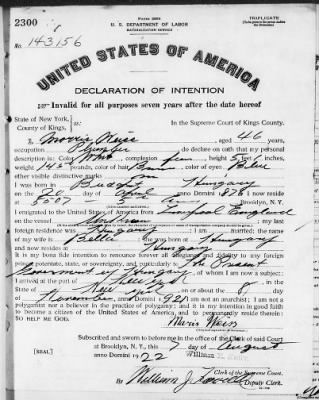 2300
FORM 2203
U. S. DEPARTMENT OF LABOR
NATURALIZATION SERVICE
TRIPLICATE
No. 143156
UNITED STATES OF AMERICA
DECLARATION OF INTENTION
Invalid for all purposes seven years after the date hereof
State of New York,
County of Kings, ss:
In the Supreme Court of Kings County.
I, Morris Weiss, aged 46 years,
occupation Plumber, do declare on oath that my personal
description is: Color White, complexion, height 5 feet 6 inches,
weight 145 pounds, color of hair, color of eyes Blue
other visible distinctive marks
I was born in Hungary
on the 20 day of April, anno Domini 1876; I now reside
at 5507 5 Ave
I emigrated to the United States of America from Liverpool England
on the vessel
foreign residence was; I am married; the name
of my wife is Bettie; she was born at Hungary
and now resides at Hungary
It is my bona fide intention to renounce forever all allegiance and fidelity to any foreign
prince, potentate, state, or sovereignty, and particularly to The Present
Government of Hungary, of whom I am now a subject;
I arrived at the port of, in the
State of, on or about the 8 day
of November, anno Domini 1921; I am not an anarchist; I am not a
polygamist nor a believer in the practice of polygamy; and it is my intention in good faith
to become a citizen of the United States of America and to permanently reside therein:
SO HELP ME GOD.
Moris Weiss
Subscribed and sworn to before me in the office of the Clerk of said Court
at Brooklyn, N. Y., this 7 day of August
[SEAL] anno Domini 1922
William E. Kelly
Clerk of the Supreme Court.
By William J., Deputy Clerk.